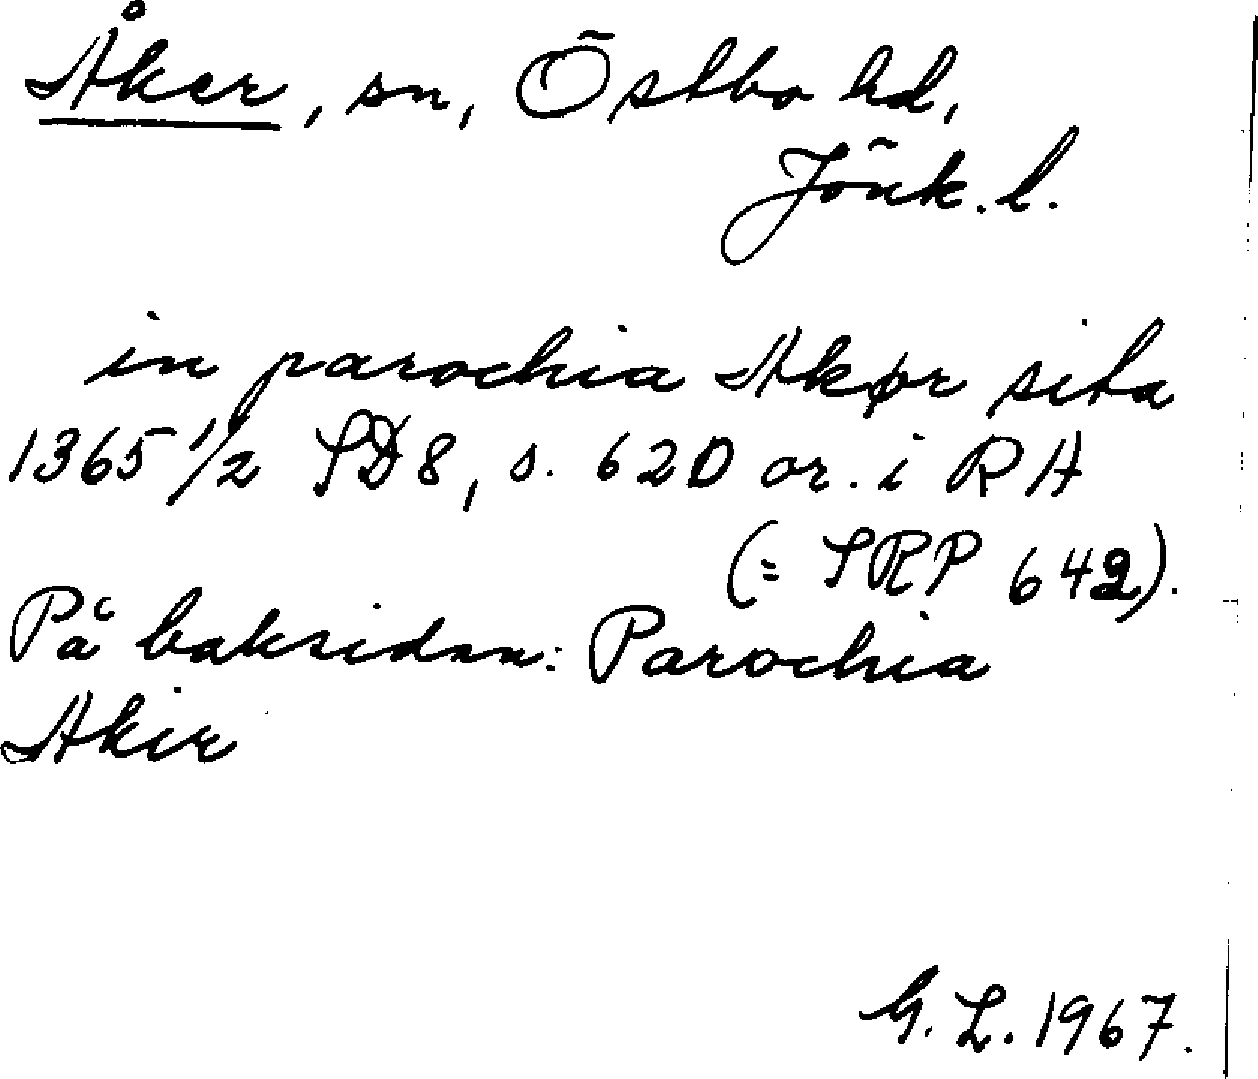 Åker, sn, Östbo hd,
Jönk. l.
in parochia Akør sita
1365 1/2 SD8, s. 620 or. i RA
(= SRP 642).
På baksidan: Parochia
Akir
G. L. 1967.